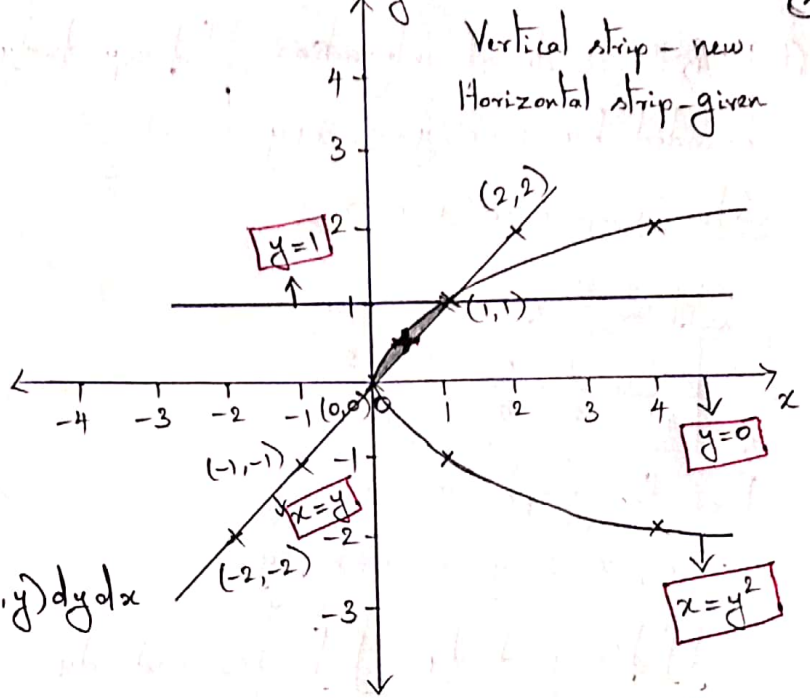 y
Vertical strip - new.
Horizontal strip - given
4
3
(2,2)
2
y=1
1
(1,1)
-4 -3 -2 -1 (0,0) O 1 2 3 4 x
y=0
(-1,-1)
-1
x=y
-2
(-2,-2)
x=y²
,y) dy dx
-3